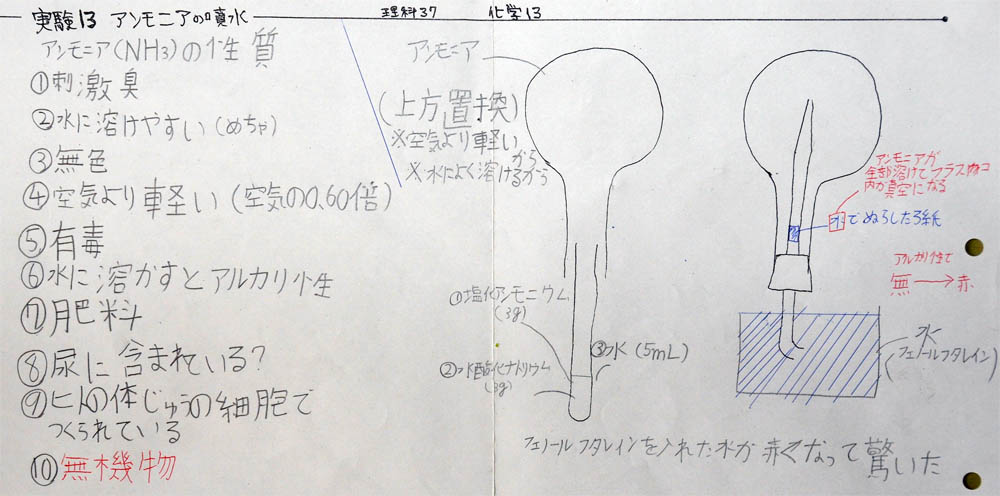 実験13 アンモニアの噴水
理科37 化学13
アンモニア(NH3)の性質
①刺激臭
②水に溶けやすい(めちゃ)
③無色
④空気より軽い(空気の0.60倍)
⑤有毒
⑥水に溶かすとアルカリ性
⑦肥料
⑧尿に含まれている?
⑨ヒトの体じゅうの細胞で
つくられている
⑩無機物
アンモニア
(上方置換)
※空気より軽いから
※水によく溶けるから
①塩化アンモニウム
(3g)
②水酸化ナトリウム
(3g)
③水(5mL)
アンモニアが
全部溶けてフラスコ
内が真空になる
水でぬらしたろ紙
アルカリ性で
無→赤
水
(フェノールフタレイン)
フェノールフタレインを入れた水が赤くなって驚いた